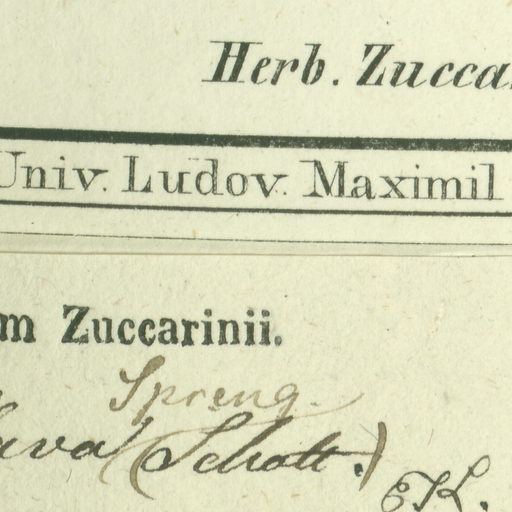 Herb. Zucca
Univ. Ludov. Maximil
m Zuccarinii.
Spreng.
(Schott.)